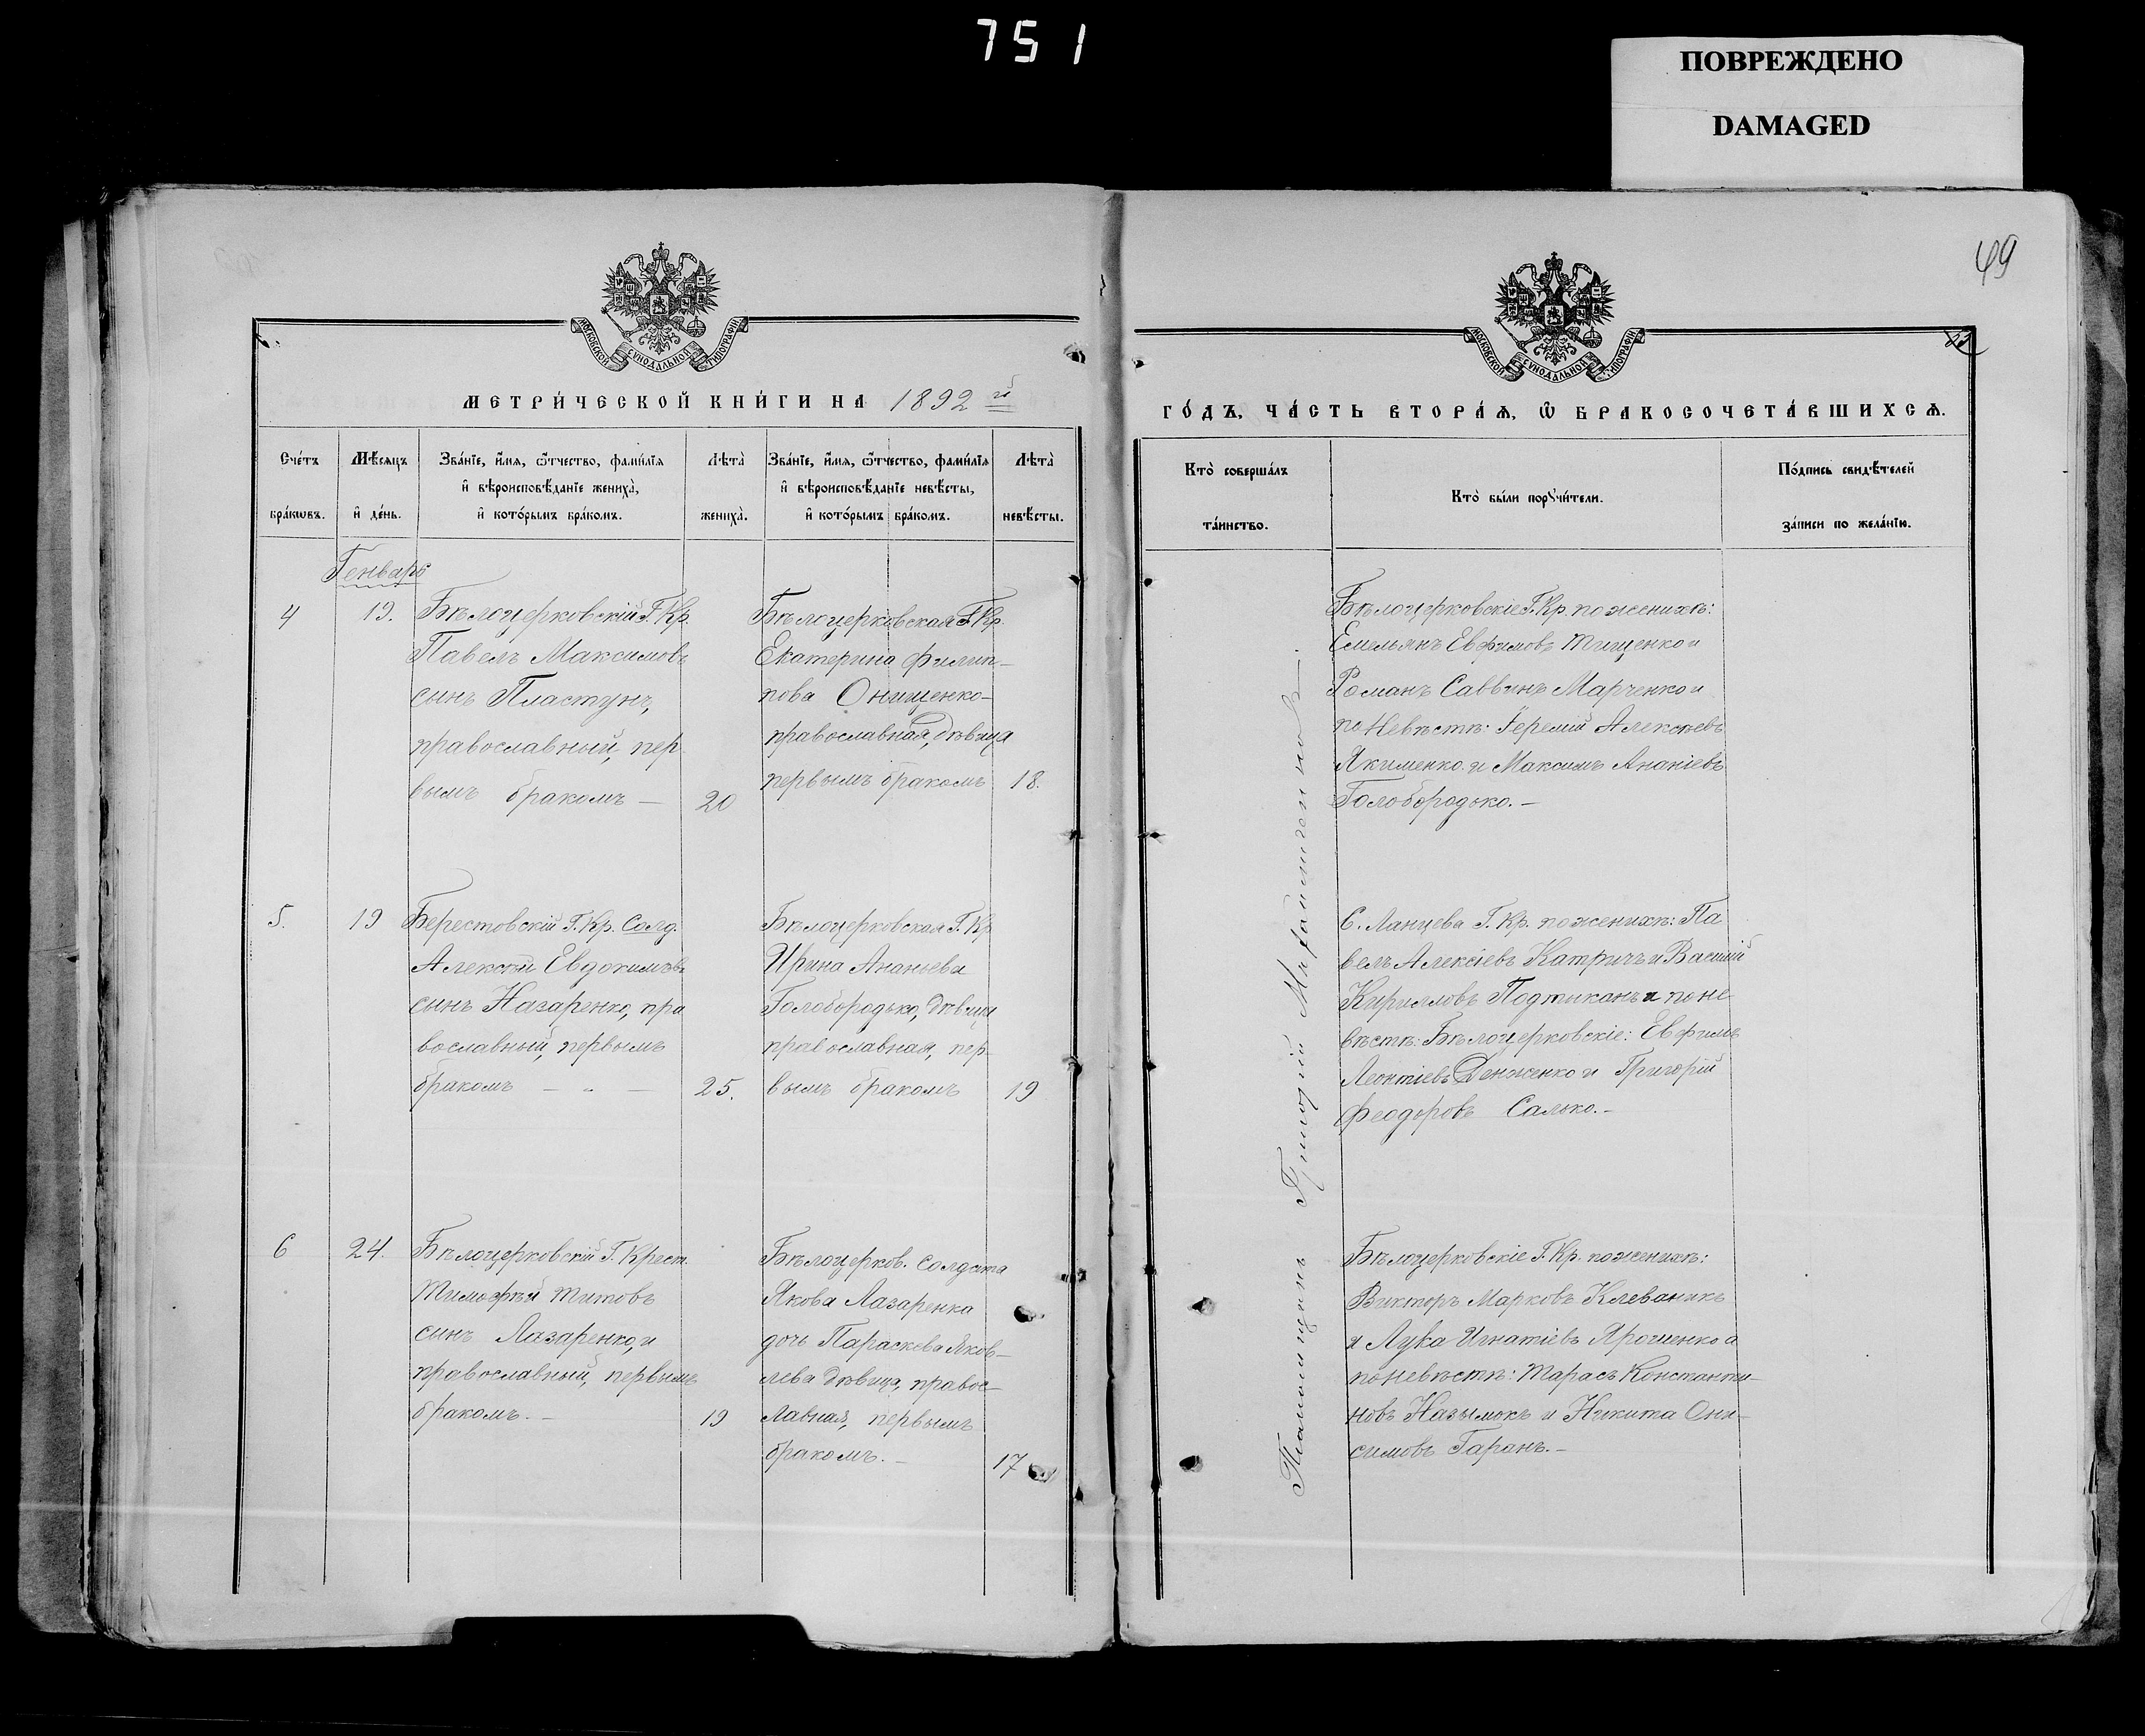 751
ПОВРЕЖДЕНО
DAMAGED
49
МОСКОВСКОЙ СѴНОДАЛЬНОЙ ТИПОГРАФІИ
МОСКОВСКОЙ СѴНОДАЛЬНОЙ ТИПОГРАФІИ
МЕТРИ́ЧЕСКОЙ КНИ́ГИ НА 1892 й
ГО́ДЪ, ЧА́СТЬ ВТОРА́Ѧ, Ѽ БРАКОСОЧЕТА́ВШИХСѦ.
Сче́тъ бра́кѡвъ.
Мѣ́сяцъ и҆ де́нь.
Зва́нїе, и҆́мя, ѻ҆́тчество, фами́лїя
и҆ вѣроисповѣ́данїе жениха̀,
и҆ кото́рымъ бра́комъ.
Лѣта̀ жениха̀.
Зва́нїе, и҆́мя, ѻ҆́тчество, фами́лїя
и҆ вѣроисповѣ́данїе невѣ́сты,
и҆ кото́рымъ бра́комъ.
Лѣта̀ невѣ́сты.
Кто̀ соверша́лъ та́инство.
Кто̀ бы́ли порꙋчи́тели.
По́дпись свидѣ́телей
за́писи по жела́нїю.
Генварь
4
19.
Бѣлоцерковскій Г. Кр.
Павелъ Максимовъ
сынъ Пластунъ,
православный, пер
вымъ бракомъ —
20
Бѣлоцерковская Г. Кр.
Екатерина Филип-
пова Онищенко-
православная, дѣвица
первымъ бракомъ
18.
Бѣлоцерковскіе Г. Кр. по женихѣ:
Емельянъ Евфимовъ Тищенко и
Романъ Саввинъ Марченко и
по невѣстѣ: Іеремій Алексѣевъ
Якименко и Максимъ Ананіевъ
Голобородько.—
5.
19
Берестовскій Г. Кр. Солд.
Алексѣй Евдокимовъ
сынъ Назаренко, пра
вославный, первымъ
бракомъ — „ —
25.
Бѣлоцерковская Г. Кр
Ирина Ананьева
Голобородько, дѣвица
православная, пер-
вымъ бракомъ
19
С. Ланцева Г. Кр. по женихѣ: Па
велъ Алексіевъ Катричъ и Василій
Кирилловъ Подтиканъ и по не
вѣстѣ: Бѣлоцерковскіе: Евфимъ
Леонтіевъ Денженко и Григорій
Феодоровъ Салько.—
6
24.
Бѣлоцерковскій Г. Крест.
Тимофѣй Титовъ
сынъ Лазаренко, и
православный, первымъ
бракомъ.—
19
Бѣлоцерков. солдата
Якова Лазаренка
дочь Параскева Яков-
лева дѣвица, правос-
лавная, первымъ
бракомъ.—
17
Бѣлоцерковскіе Г. Кр. по женихѣ:
Викторъ Марковъ Клеваникъ
и Лука Игнатіевъ Ярошенко а
по невѣстѣ: Тарасъ Константи-
новъ Назымокъ и Никита Они-
симовъ Гаранъ.—
Григорій